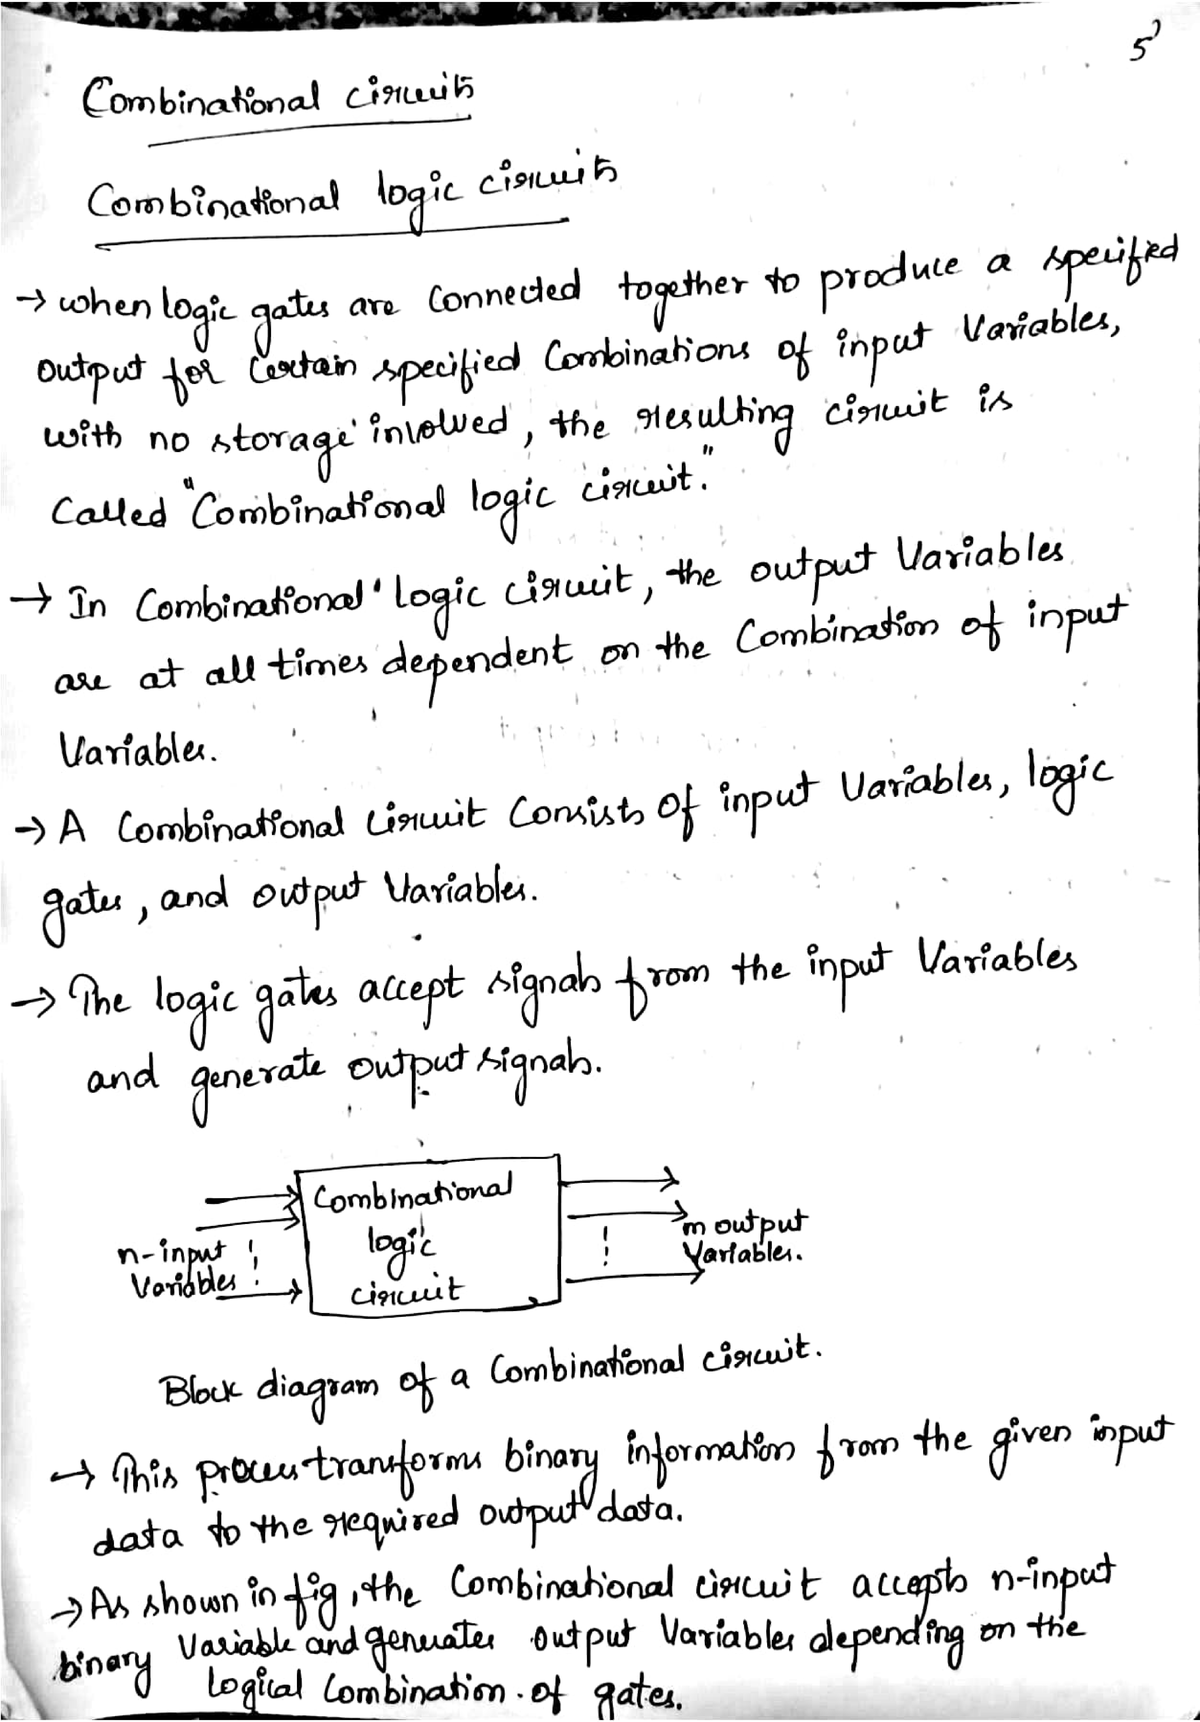 5
Combinational circuits
Combinational logic circuits
→ when logic gates are connected together to produce a specified
output for certain specified combinations of input variables,
with no storage involved, the resulting circuit is
called "combinational logic circuit."
→ In combinational logic circuit, the output variables
are at all times dependent on the combination of input
variables.
→ A combinational circuit consists of input variables, logic
gates, and output variables.
→ The logic gates accept signals from the input variables
and generate output signals.
n-input
variables
Combinational
logic
circuit
m output
variables.
Block diagram of a combinational circuit.
→ This process transforms binary information from the given input
data to the required output data.
→ As shown in fig, the combinational circuit accepts n-input
binary variable and generates output variables depending on the
logical combination of gates.